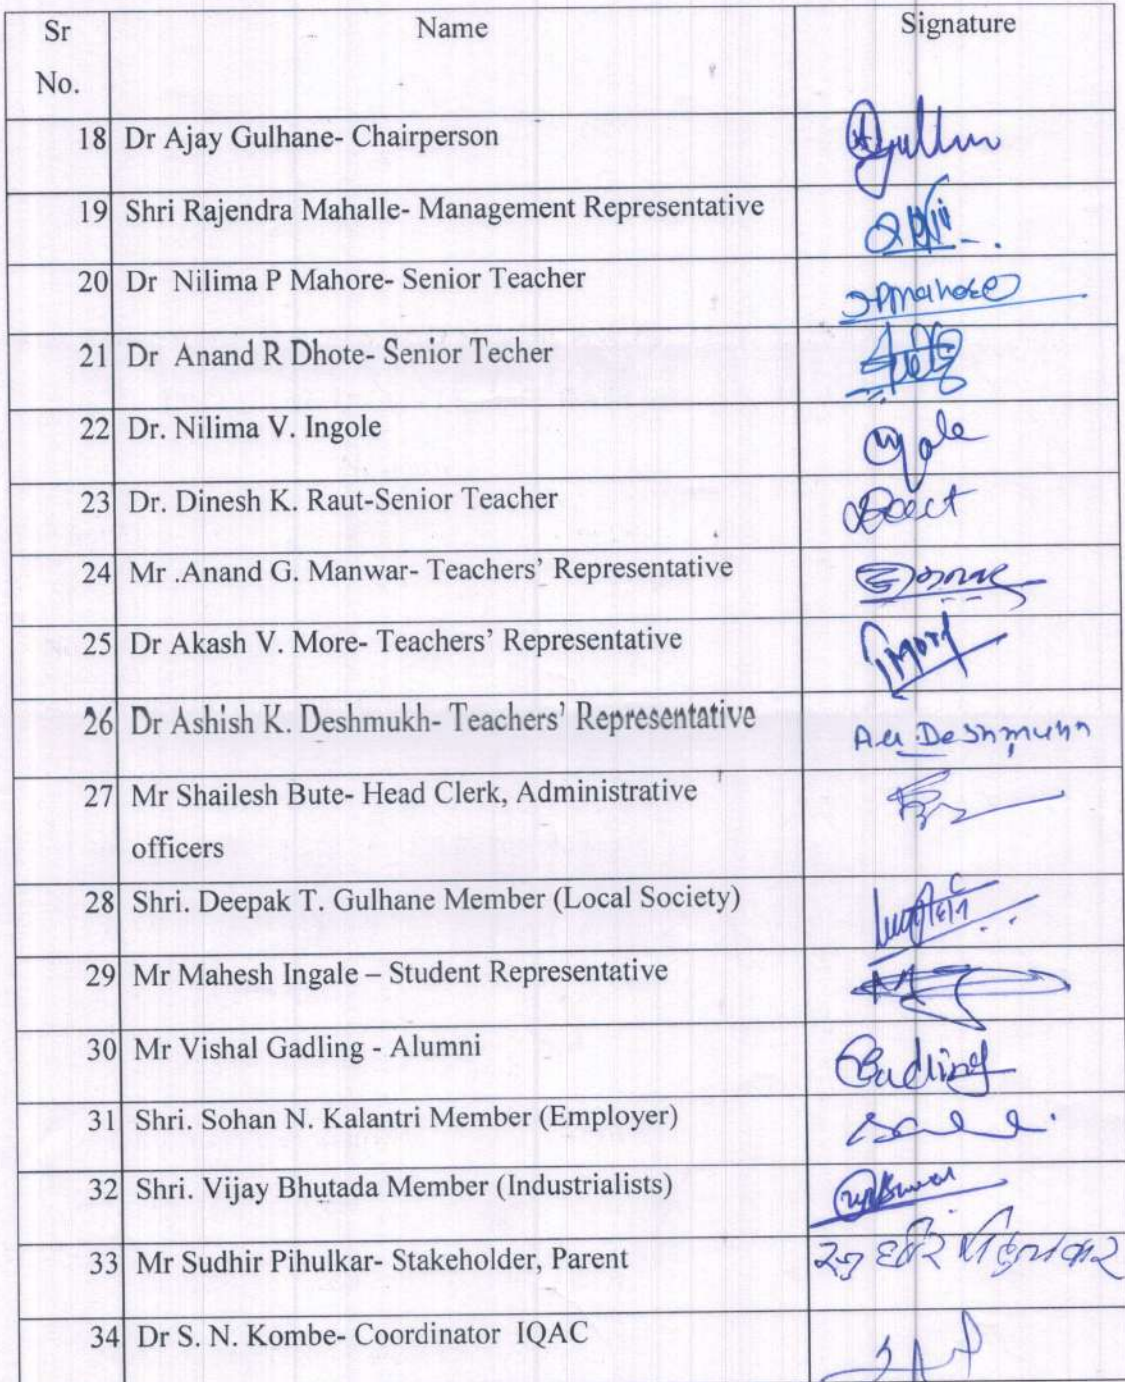 Sr No.	Name	Signature
18	Dr Ajay Gulhane- Chairperson
19	Shri Rajendra Mahalle- Management Representative
20	Dr Nilima P Mahore- Senior Teacher	Pmahore
21	Dr Anand R Dhote- Senior Techer
22	Dr. Nilima V. Ingole
23	Dr. Dinesh K. Raut-Senior Teacher
24	Mr .Anand G. Manwar- Teachers’ Representative
25	Dr Akash V. More- Teachers’ Representative
26	Dr Ashish K. Deshmukh- Teachers’ Representative	Deshmukh
27	Mr Shailesh Bute- Head Clerk, Administrative
officers
28	Shri. Deepak T. Gulhane Member (Local Society)
29	Mr Mahesh Ingale – Student Representative
30	Mr Vishal Gadling - Alumni	Gadling
31	Shri. Sohan N. Kalantri Member (Employer)
32	Shri. Vijay Bhutada Member (Industrialists)
33	Mr Sudhir Pihulkar- Stakeholder, Parent
34	Dr S. N. Kombe- Coordinator IQAC